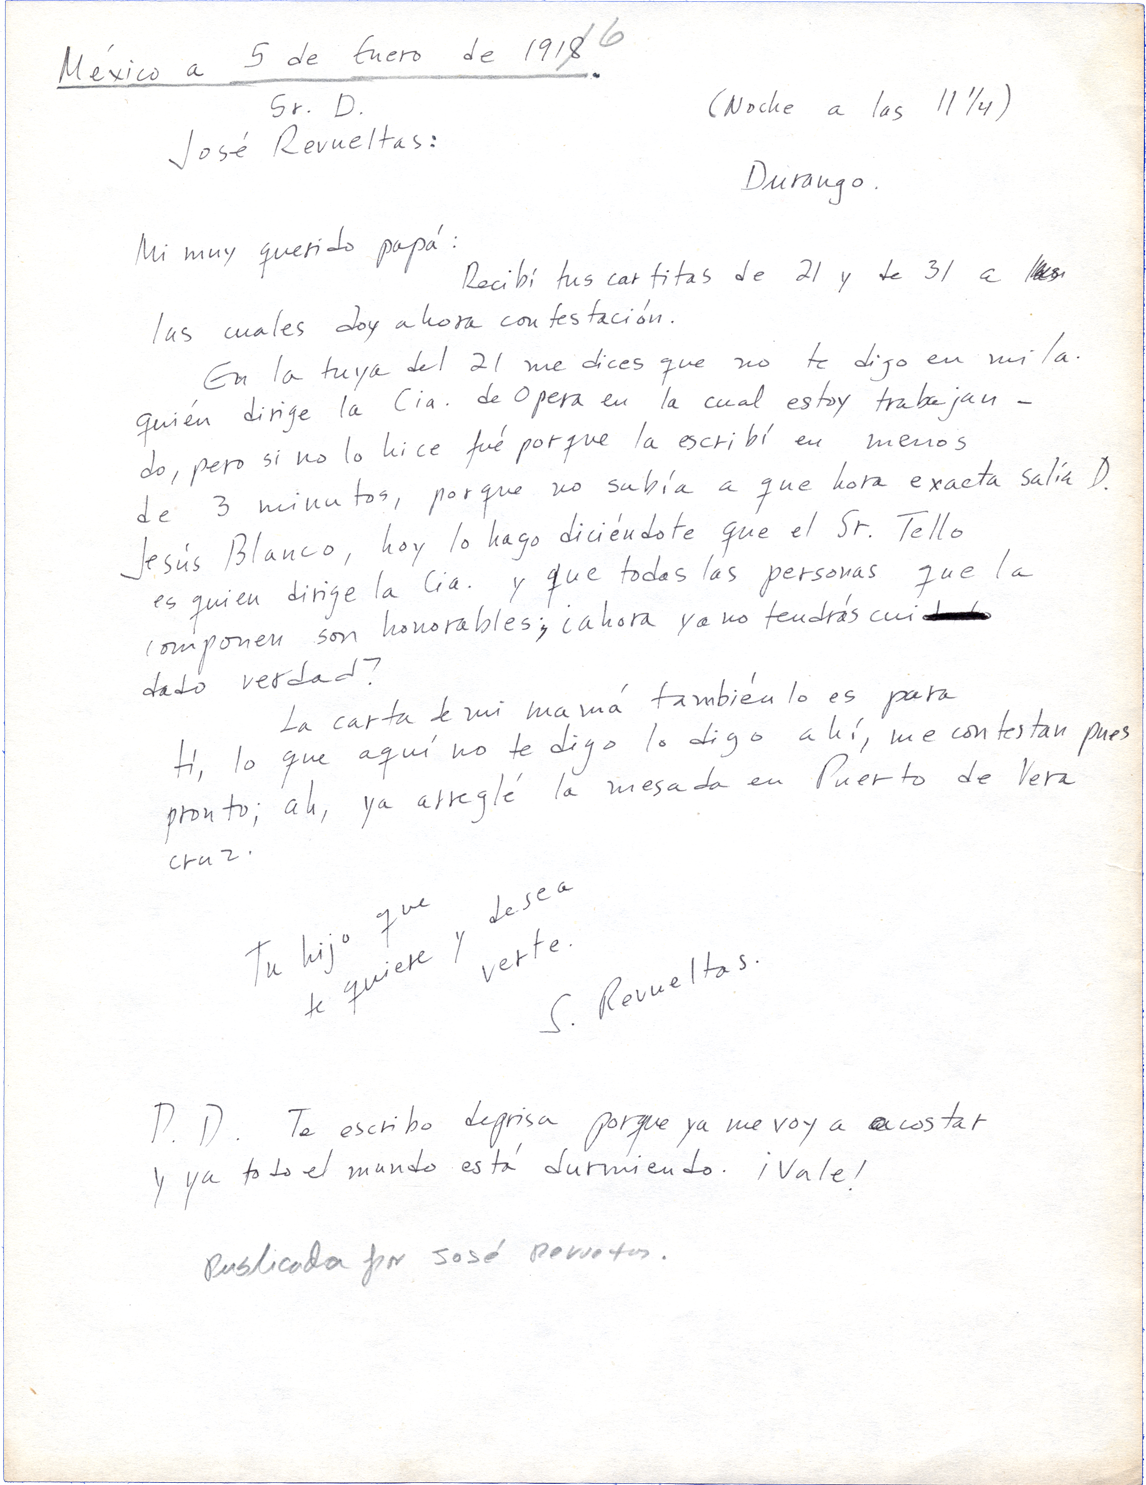 México a 5 de Enero de 1918 6.
Sr. D.
(Noche a las 11 1/4)
José Revueltas:
Durango.
Mi muy querido papá:
Recibí tus cartitas de 21 y de 31 a las
las cuales doy ahora contestación.
En la tuya del 21 me dices que no te digo en mi la.
quién dirige la Cia. de Opera en la cual estoy trabajan-
do, pero si no lo hice fué porque la escribí en menos
de 3 minutos, porque no sabía a que hora exacta salía D.
Jesús Blanco, hoy lo hago diciéndote que el Sr. Tello
es quien dirige la Cia. y que todas las personas que la
componen son honorables; ¿ahora ya no tendrás cui
dado verdad?
La carta de mi mamá también lo es para
tí, lo que aquí no te digo lo digo ahí, me contestan pues
pronto; ah, ya arreglé la mesada en Puerto de Vera
cruz.
Tu hijo que
te quiere y desea
verte.
S. Revueltas.
P. D. Te escribo deprisa porque ya me voy a acostar
y ya todo el mundo está durmiendo. ¡Vale!
Publicada por José Revueltas.